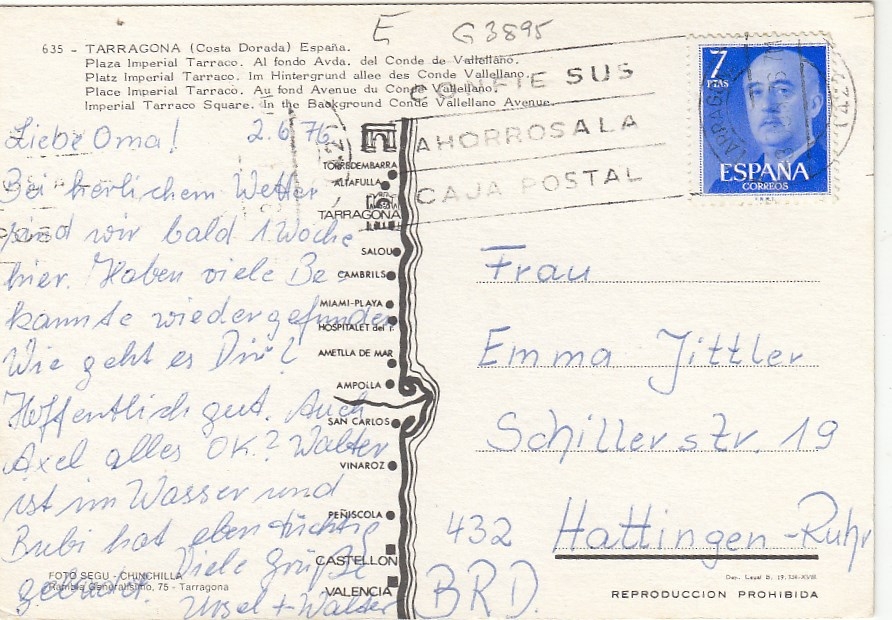 E G3895
635 - TARRAGONA (Costa Dorada) España.
Plaza Imperial Tarraco. Al fondo Avda. del Conde de Vallellano.
Platz Imperial Tarraco. Im Hintergrund allee des Conde Vallellano.
Place Imperial Tarraco. Au fond Avenue du Conde Vallellano.
Imperial Tarraco Square. In the Background Conde Vallellano Avenue.
CONFIE SUS
AHORROS A LA
CAJA POSTAL
7
PTAS
ESPAÑA
CORREOS
Liebe Oma! 2.6.76
Bei herlichem Wetter
sind wir bald 1 Woche
hier. Haben viele Be-
kannte wiedergefunden
Wie geht es Dir?
Hoffentlich gut. Auch
Axel alles OK.? Walter
ist im Wasser und
Bubi hat eben tüchtig
gebadet. Viele Grüße
Ursel + Walter
TORREDEMBARRA
ALTAFULLA
TARRAGONA
SALOU
CAMBRILS
MIAMI-PLAYA
HOSPITALET del I.
AMETLLA DE MAR
AMPOLLA
SAN CARLOS
VINAROZ
PEÑISCOLA
CASTELLON
VALENCIA
Frau
Emma Jittler
Schillerstr. 19
432 Hattingen-Ruhr
BRD.
FOTO SEGU - CHINCHILLA
Rambla Generalísimo, 75 - Tarragona
REPRODUCCION PROHIBIDA